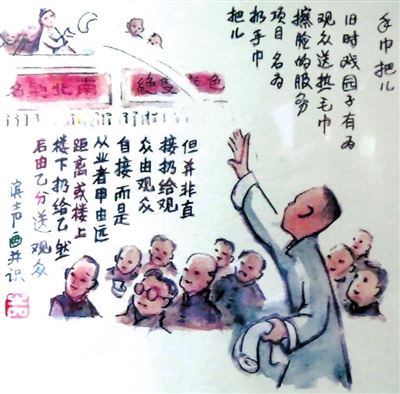 手巾把儿
旧时戏园子有为
观众送热毛巾
擦脸的服务
项目 名为
扔手巾
把儿
色藝雙絕
南北馳名
但并非直
接扔给观
众由观众
自接而是
从业者甲由远
距离或楼上
楼下扔给乙然
后由乙分送观众
滨声画并识